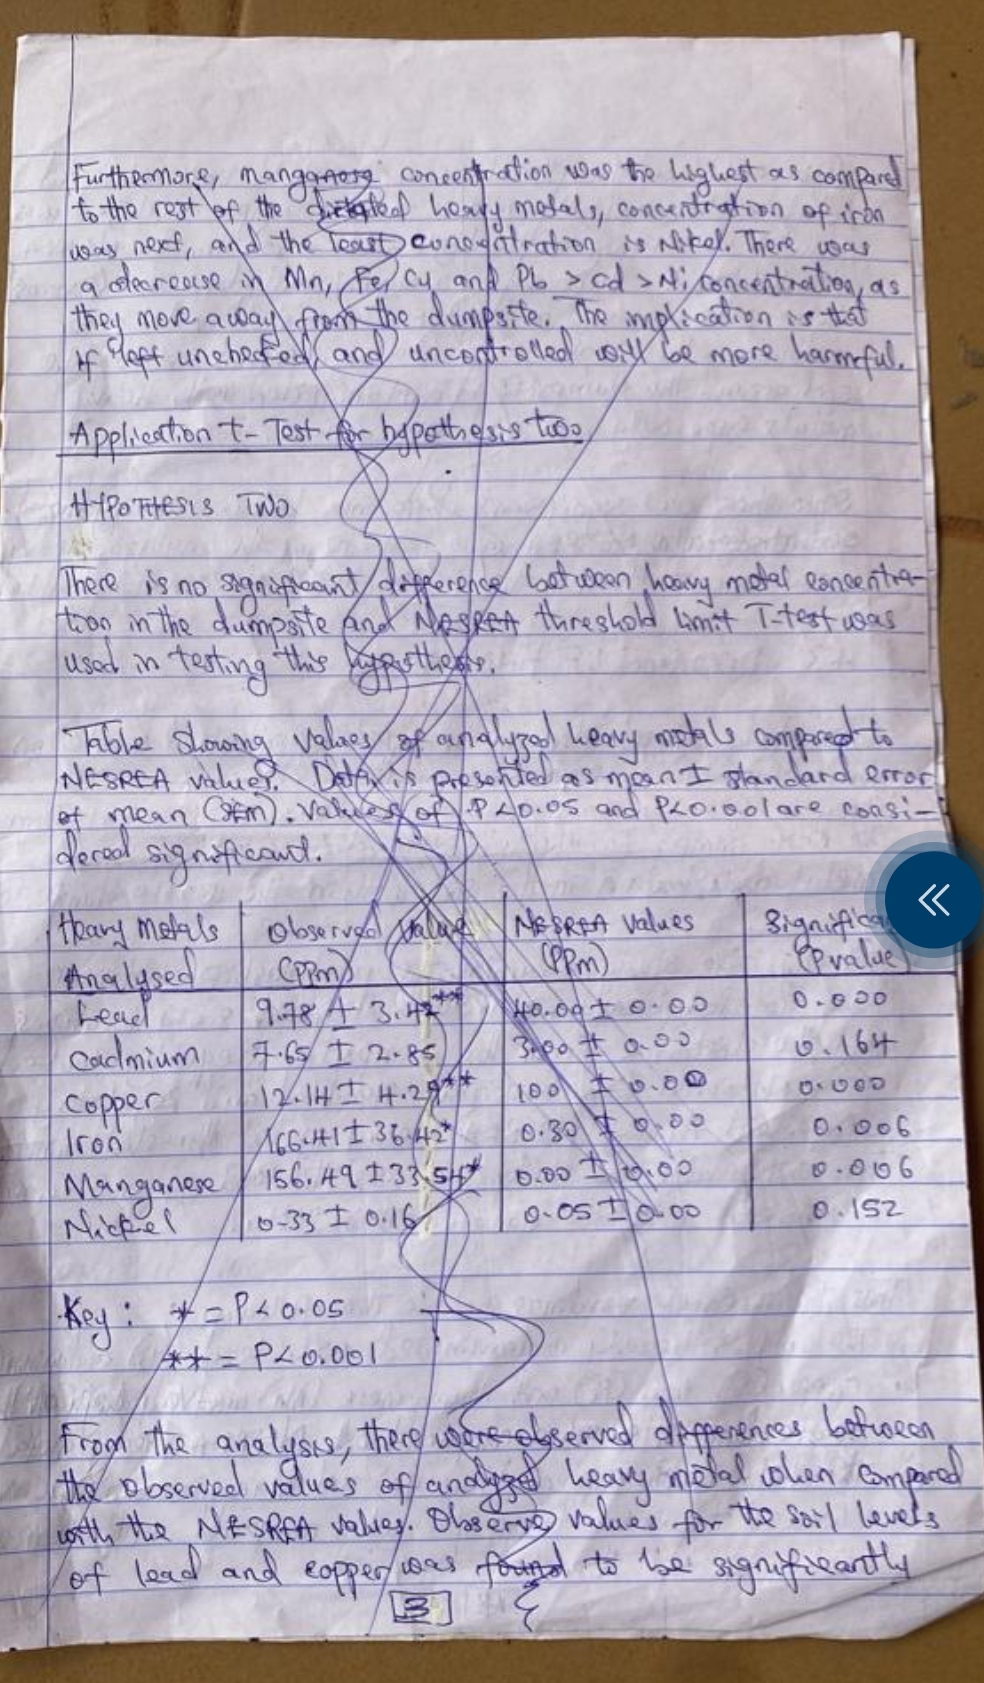 Furthermore, manganese concentration was the highest as compared
to the rest of the dictated heavy metals, concentration of iron
was next, and the least concentration is Nikel. There was
a decrease in Mn, Fe, Cu and Pb > Cd > Ni concentration, as
they move away from the dumpsite. The implication is that
if left unchecked and uncontrolled will be more harmful.
Application t-Test for hypothesis two
HYPOTHESIS TWO
There is no significant difference between heavy metal concentra-
tion in the dumpsite and NESREA threshold limit T-test was
used in testing this hypothesis.
Table showing values of analyzed heavy metals compared to
NESREA values. Data is presented as mean ± standard error
of mean (SEm). Values of P<0.05 and P<0.001 are consi-
dered significant.
Heavy Metals Observed Value NESREA Values
Analysed (PPm) (PPm) (Pvalue)
Lead 9.78 ± 3.42** 40.00 ± 0.00 0.000
Cadmium 7.65 ± 2.85 3.00 ± 0.00 0.164
Copper 12.14 ± 4.29** 100 ± 0.00 0.000
Iron 166.41 ± 36.42* 0.30 ± 0.00 0.006
Manganese 156.49 ± 33.54* 0.00 ± 0.00 0.006
Nickel 0.33 ± 0.16 0.05 ± 0.00 0.152
Key: * = P < 0.05
** = P < 0.001
From the analysis, there were observed differences between
the observed values of analyzed heavy metal when compared
with the NESREA values. Observe values for the soil levels
of lead and copper was found to be significantly
3